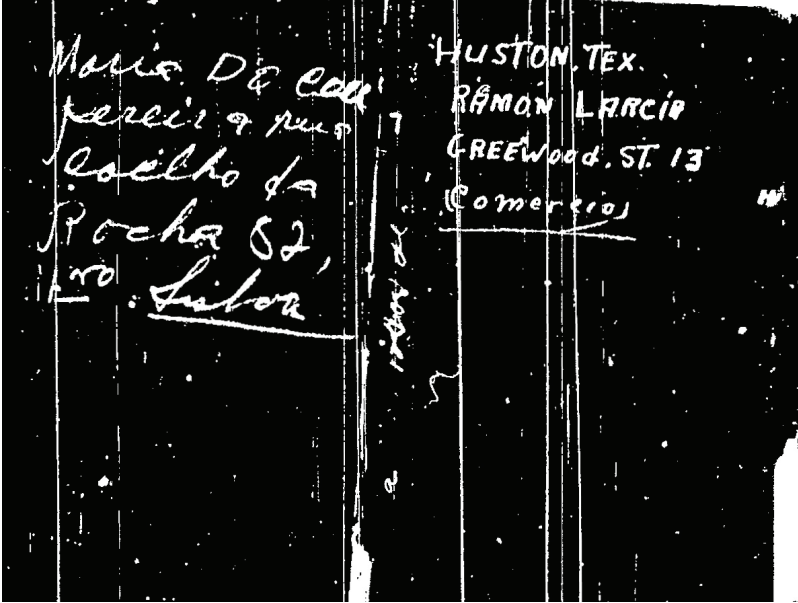 Maria De
pereira rua
Coelho da
Rocha 82,
1ro. Lisboa
HUSTON. TEX.
RAMON LARCIA
GREEWOOD. ST. 13
(Comercio)